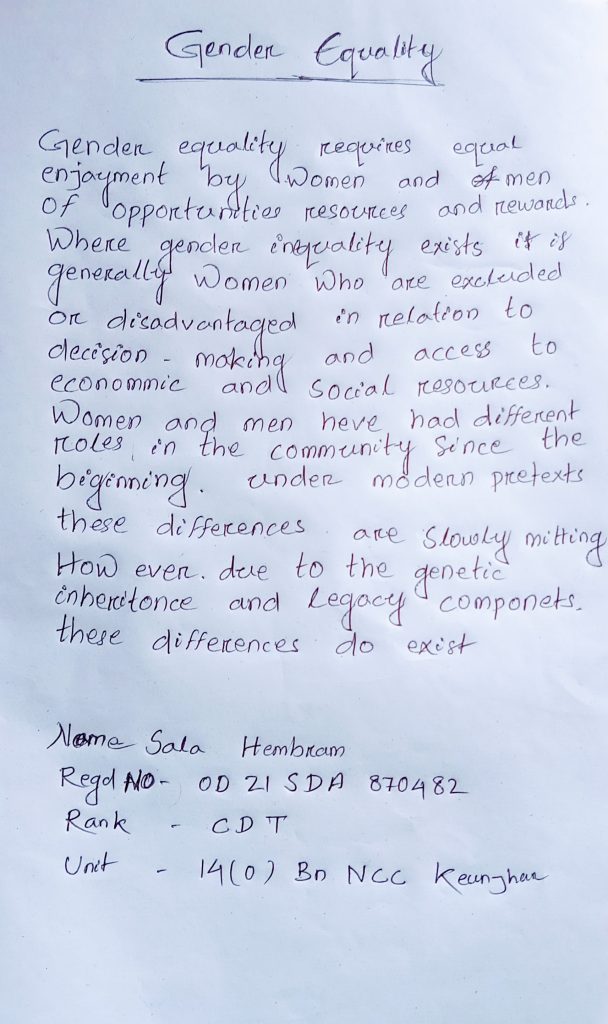 Gender Equality
Gender equality requires equal
enjoyment by Women and of men
Of opportunities resources and rewards.
Where gender inequality exists it is
generally Women Who are excluded
or disadvantaged in relation to
decision - making and access to
econommic and social resources.
Women and men heve had different
roles in the community Since the
beginning. under modern pretexts
these differences are Slowly mitting
How ever. due to the genetic
inheritonce and Legacy componets.
these differences do exist
Name Sala Hembram
Regd NO- OD 21 SDA 870482
Rank - CDT
Unit - 14(O) Bn NCC Keunjhar